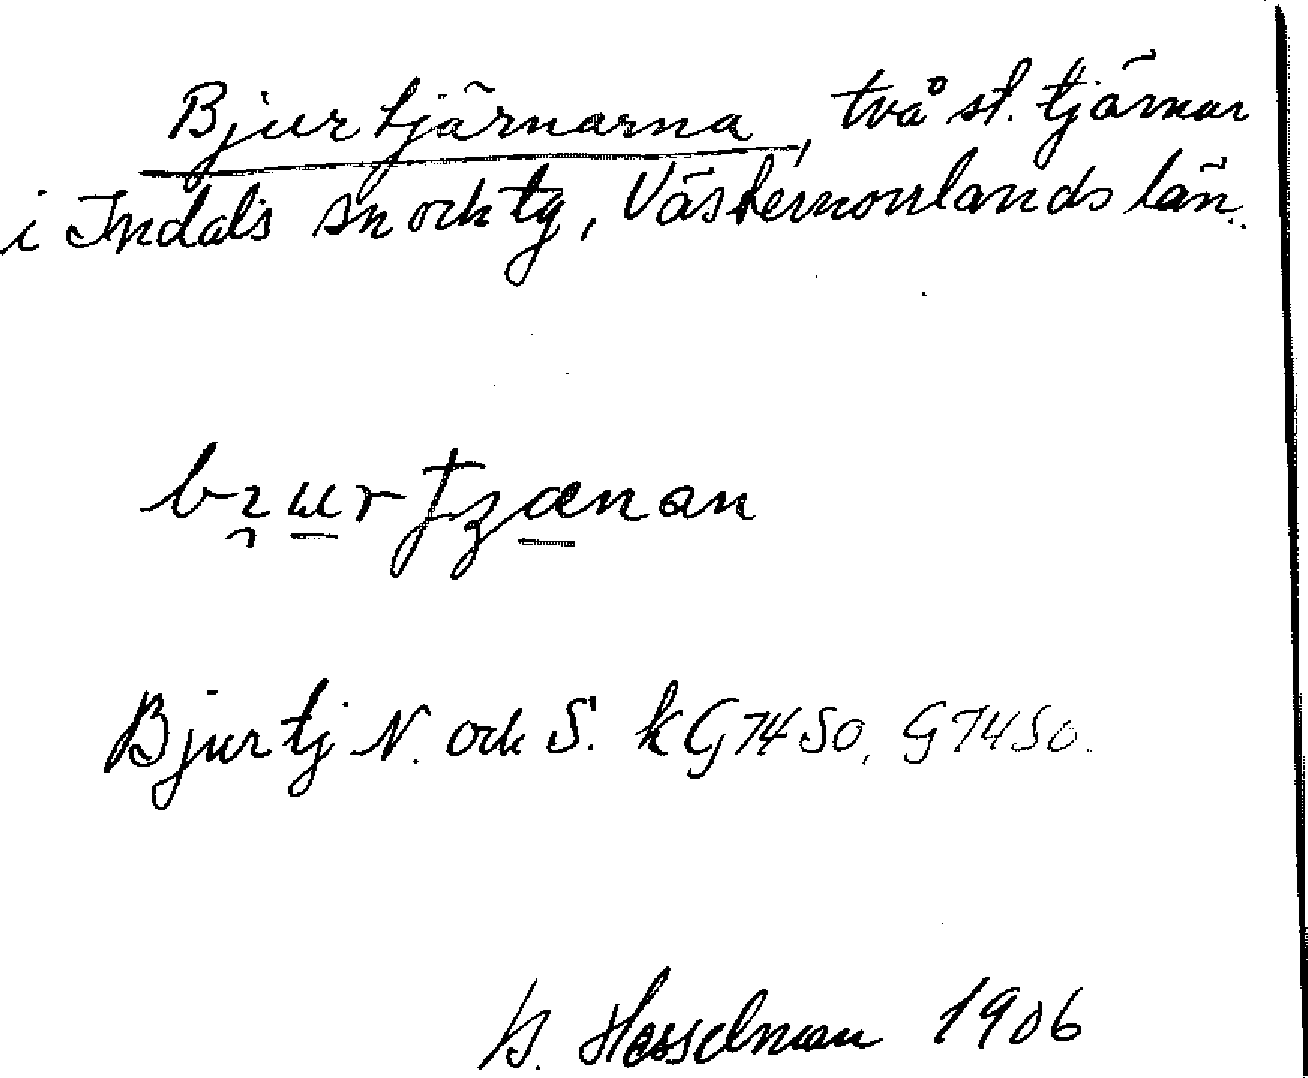 Bjurtjärnarna, två st. tjärnar
i Indals sn och tg, Västernorrlands län.
Bjurtj N. och S. k G7450, G7450.
B. Hesselman 1906